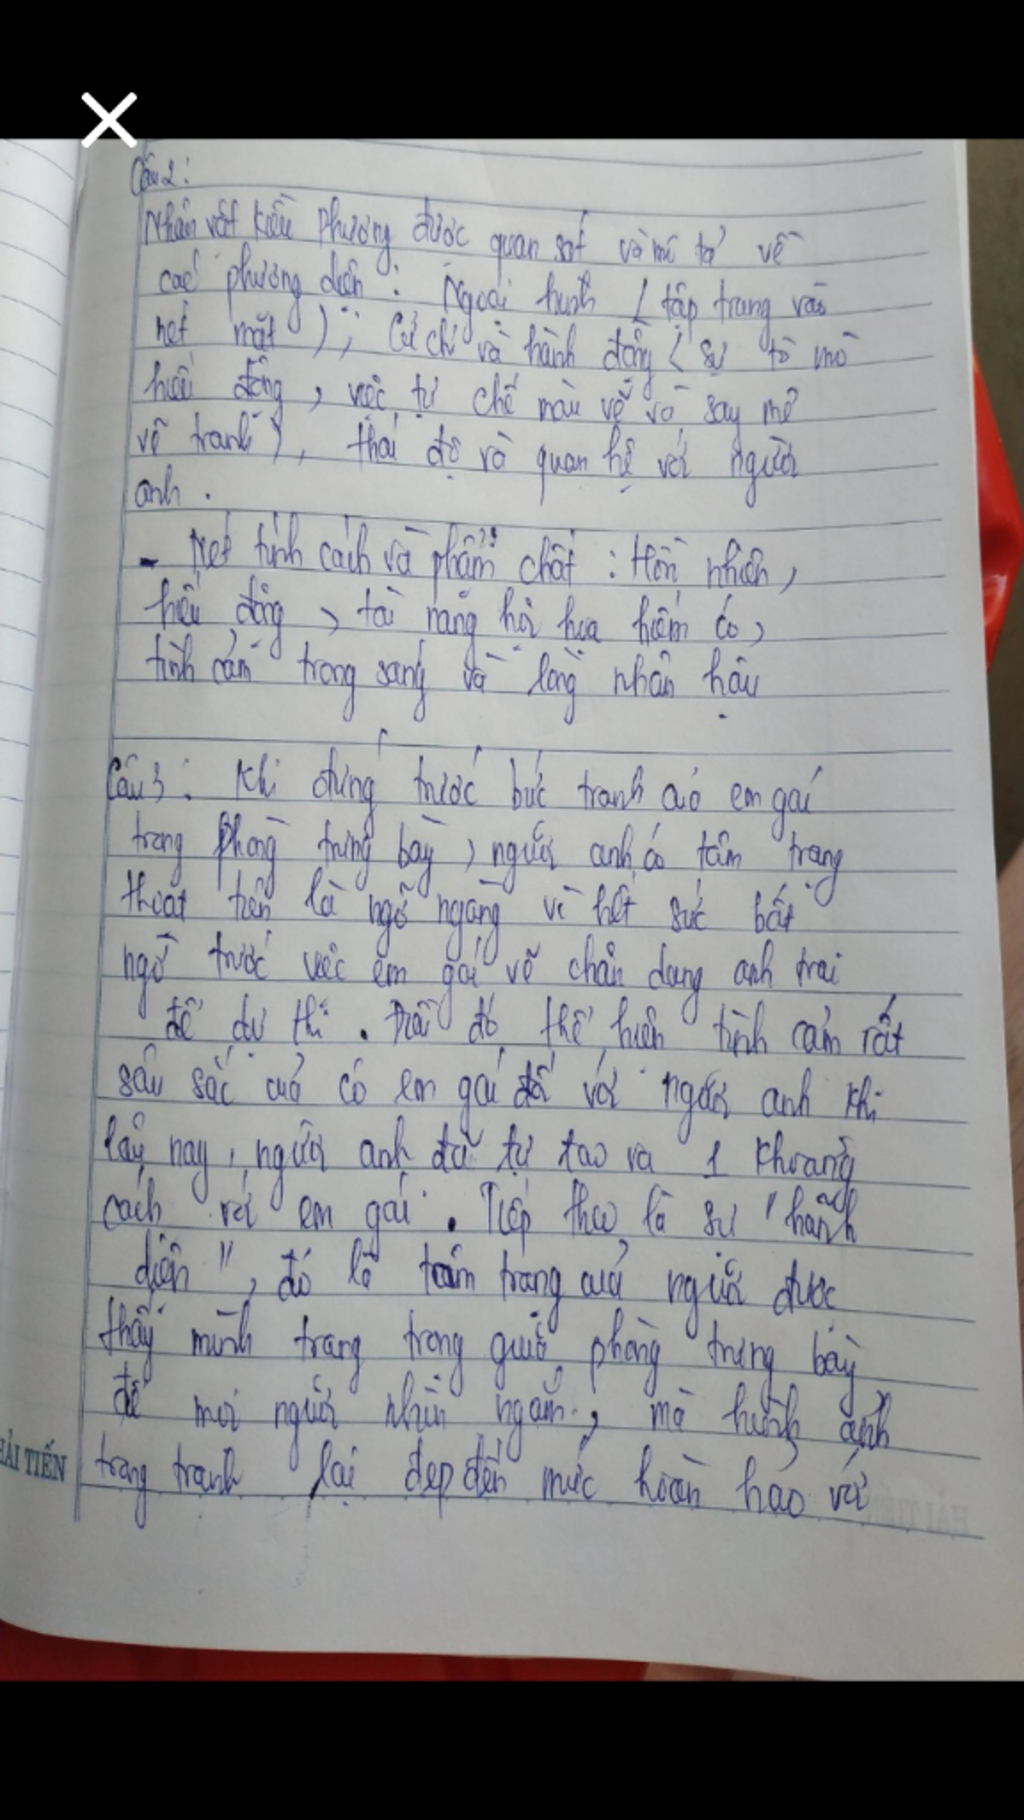 Câu 2:
Nhân vật Kiều Phương được quan sát và mô tả về
các phương diện: Ngoại hình (tập trung vào
nét mặt); Cử chỉ và hành động (sự tò mò
hiếu động, việc tự chế màu vẽ và say mê
vẽ tranh), thái độ và quan hệ với người
anh.
- Nét tính cách và phẩm chất: Hồn nhiên,
hiếu động, tài năng hội họa hiếm có,
tình cảm trong sáng và lòng nhân hậu
Câu 3: Khi đứng trước bức tranh của em gái
trong phòng trưng bày, người anh có tâm trạng
thoạt tiên là ngỡ ngàng vì hết sức bất
ngờ trước việc em gái vẽ chân dung anh trai
để dự thi. đó thể hiện tình cảm rất
sâu sắc của cô em gái đối với người anh khi
lâu nay, người anh đã tự tạo ra 1 khoảng
cách với em gái. Tiếp theo là sự "hãnh
diện", đó là tâm trạng của người được
thấy mình trang trong phòng trưng bày
để mọi người nhìn ngắm, mà hình ảnh
trong tranh lại đẹp đến mức hoàn hảo với
HẢI TIẾN